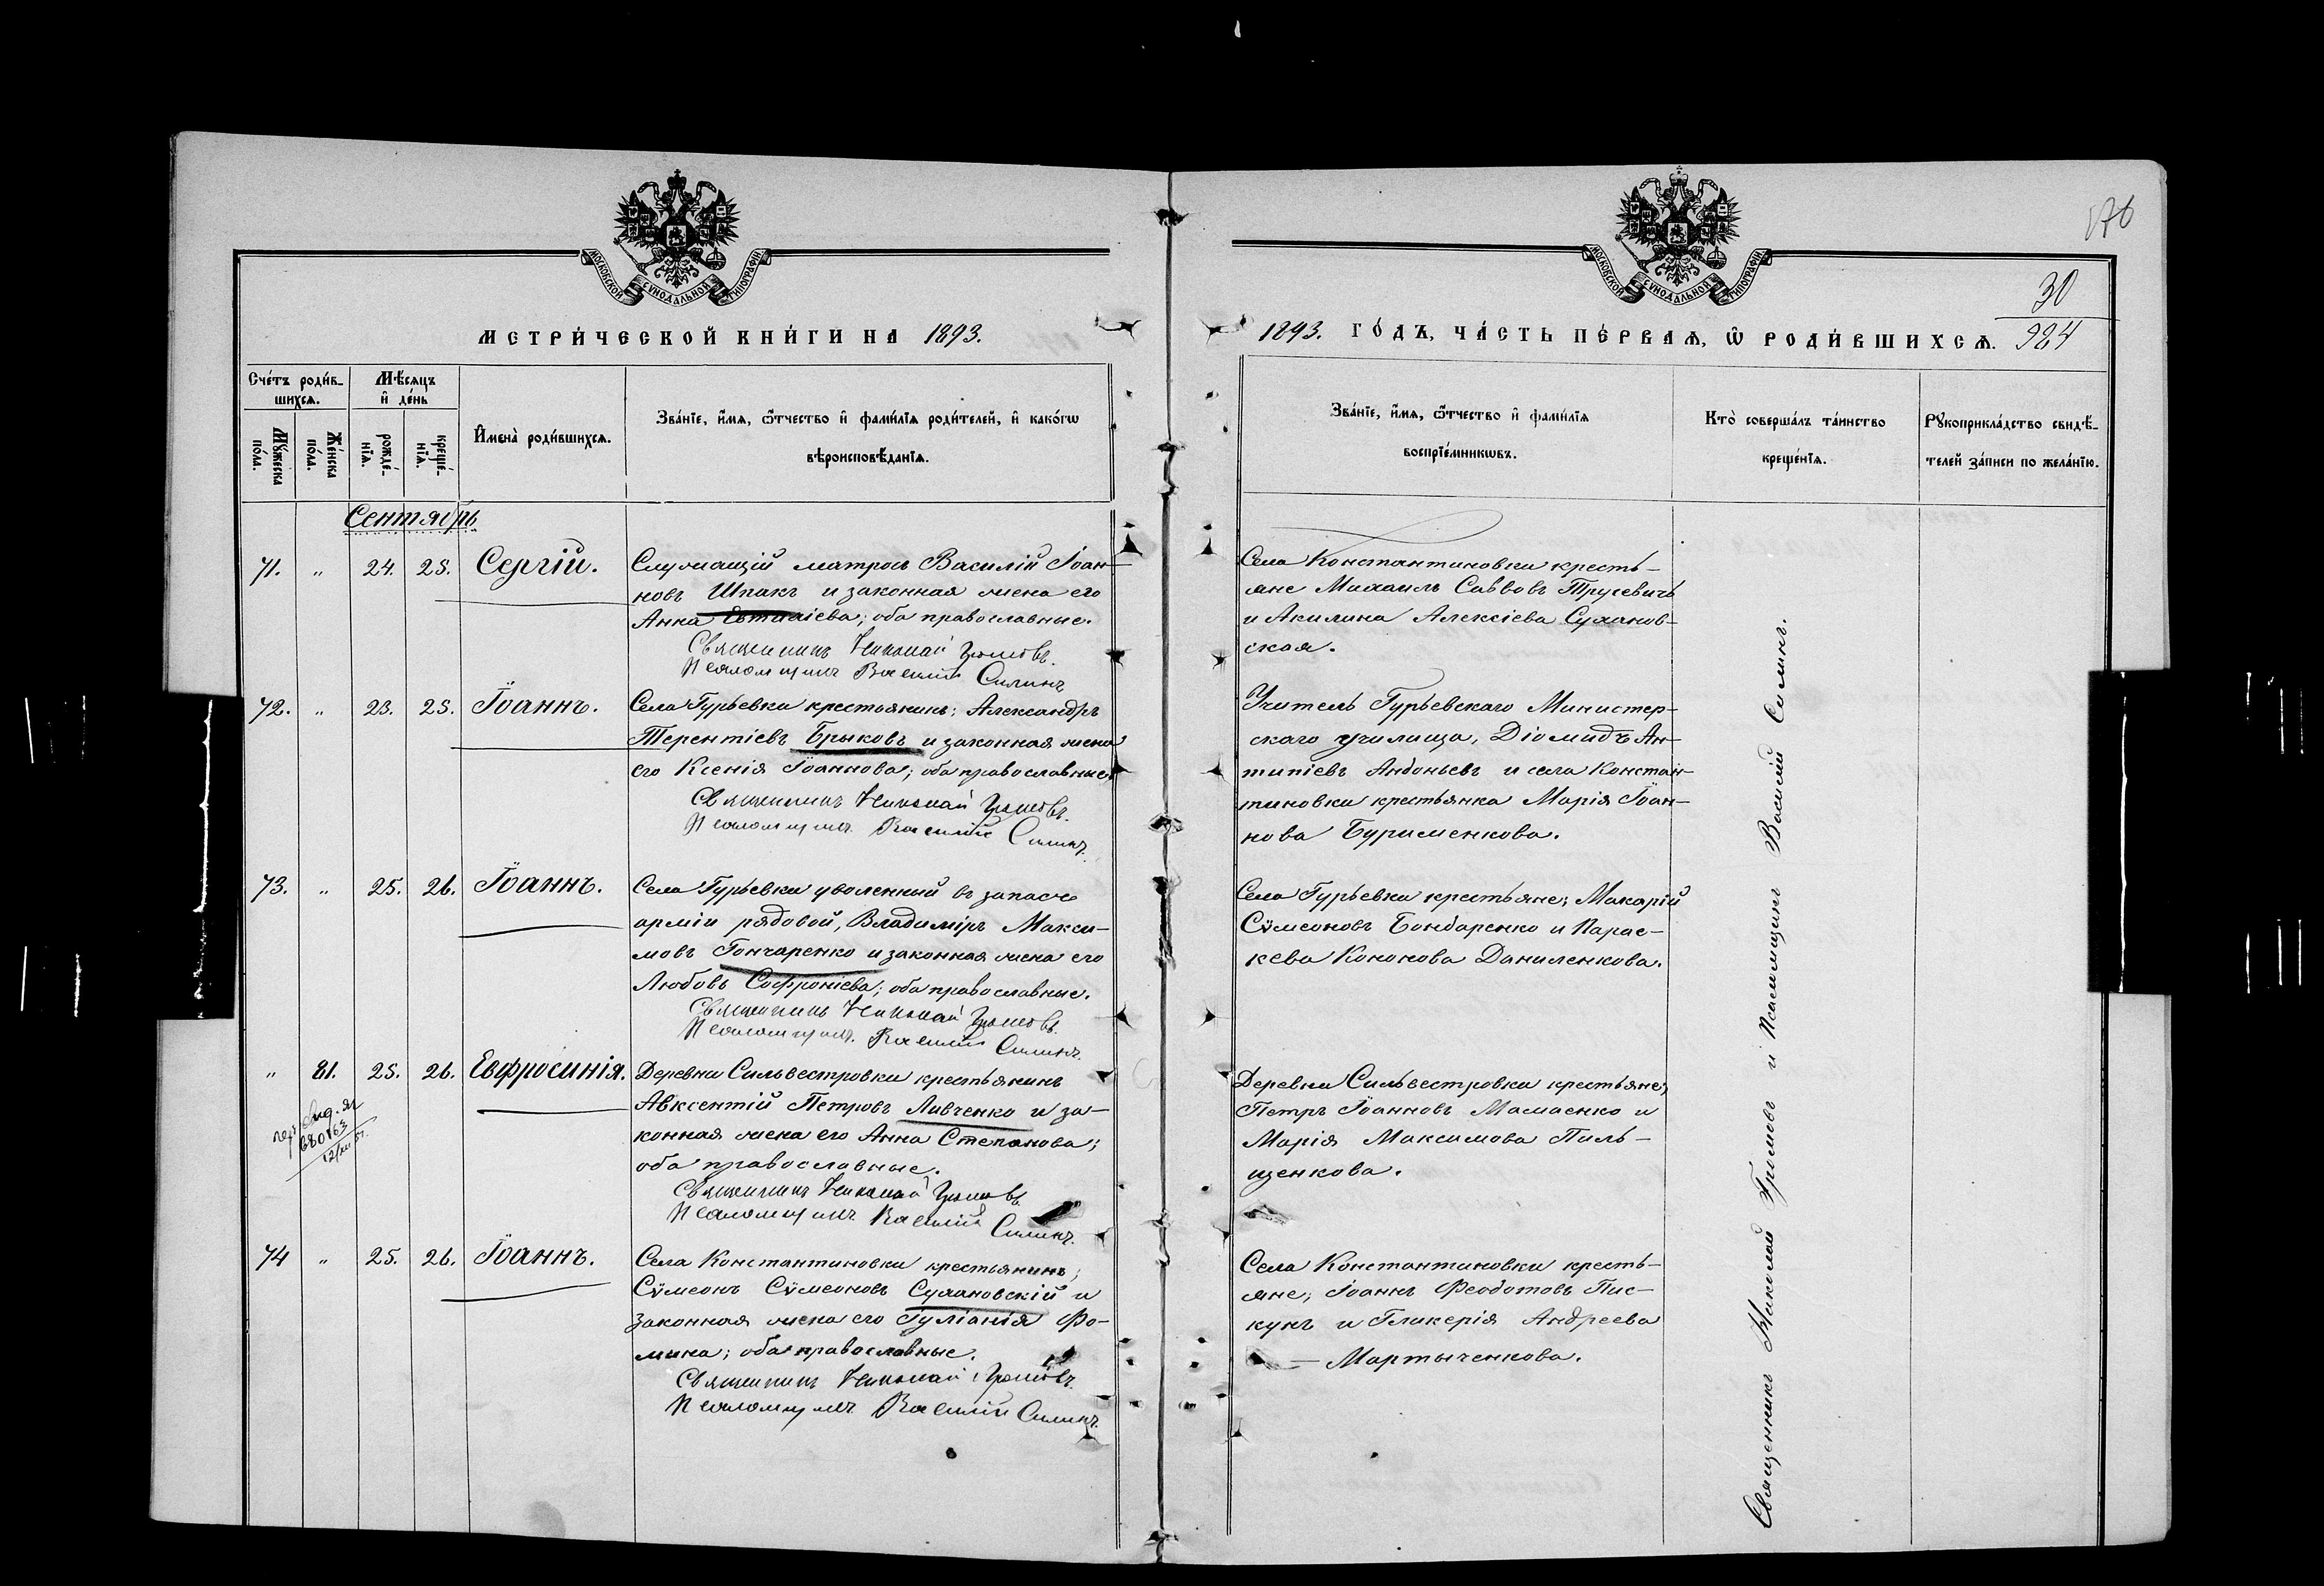 МОСКОВСКОЙ СѴНОДАЛЬНОЙ ТИПОГРАФІИ
МЕТРИ́ЧЕСКОЙ КНИ́ГИ НА 1893.
Сче́тъ роди́в-
шихсѧ.
Мѣ́сѧцъ
и҆ де́нь
Мꙋ́жеска
по́ла.
Же́нска
по́ла.
рожде́-
нїѧ.
креще́-
нїѧ.
И҆мена̀ роди́вшихсѧ.
Зва́нїе, и҆́мѧ, ѻ҆́тчество и҆ фами́лїѧ роди́телей, и҆ како́гѡ
вѣроисповѣ́данїѧ.
Сентябрь
71. " 24. 25. Сергій.
Служащій матросъ Василій Іоан-
новъ Шпакъ и законная жена его
Анна Евтихіева; оба православные.
Священникъ Николай Громовъ.
Псаломщикъ Василій Силинъ
72. " 23. 25. Іоаннъ.
Села Гурьевки крестьянинъ; Александръ
Терентіевъ Брыковъ и законная жена
его Ксенія Іоаннова; оба православные.
Священникъ Николай Громовъ.
Псаломщикъ Василій Силинъ.
73. " 25. 26. Іоаннъ.
Села Гурьевки уволенный въ запасъ
арміи рядовой, Владиміръ Макси-
мовъ Гончаренко и законная жена его
Любовь Софроніева; оба православные.
Священникъ Николай Громовъ.
Псаломщикъ Василій Силинъ.
" 81. 25. 26. Евфросинія.
Деревни Сильвестровки крестьянинъ
Авксентій Петровъ Ливченко и за-
конная жена его Анна Степанова;
оба православные.
Священникъ Николай Громовъ
Псаломщикъ Василій Силинъ.
74 " 25. 26. Іоаннъ.
Села Константиновки крестьянинъ;
Сѵмеонъ Сѵмеоновъ Сухановскій и
законная жена его Іуліанія Фо-
мина; оба православные.
Священникъ Николай Громовъ.
Псаломщикъ Василій Силинъ.
176
МОСКОВСКОЙ СѴНОДАЛЬНОЙ ТИПОГРАФІИ
30
924
1893. ГО́ДЪ, ЧА́СТЬ ПЕ́РВАѦ, Ѡ҆ РОДИ́ВШИХСѦ.
Зва́нїе, и҆́мѧ, ѻ҆́тчество и҆ фами́лїѧ
воспрїе́мникѡвъ.
Кто̀ соверша́лъ та́инство
креще́нїѧ.
Рꙋкоприкла́дство свидѣ́-
телей за́писи по жела́нїю.
Села Константиновки кресть-
яне Михаилъ Саввовъ Трусевичъ
и Акилина Алексіева Суханов-
ская.
Учитель Гурьевскаго Министер-
скаго училища, Діомидъ Ан-
типіевъ Андоньевъ и села Констан-
тиновки крестьянка Марія Іоан-
нова Буряменкова.
Села Гурьевки крестьяне; Макарій
Сѵмеоновъ Бондаренко и Парас-
кева Кононова Даниленкова.
Деревни Сильвестровки крестьяне;
Петръ Іоанновъ Мамаенко и
Марія Максимова Пиль-
щенкова.
Села Константиновки кресть-
яне; Іоаннъ Феодотовъ Пис-
кунъ и Гликерія Андреева
Мартыченкова.
Священникъ Николай Громовъ и Псаломщикъ Василій Силинъ.